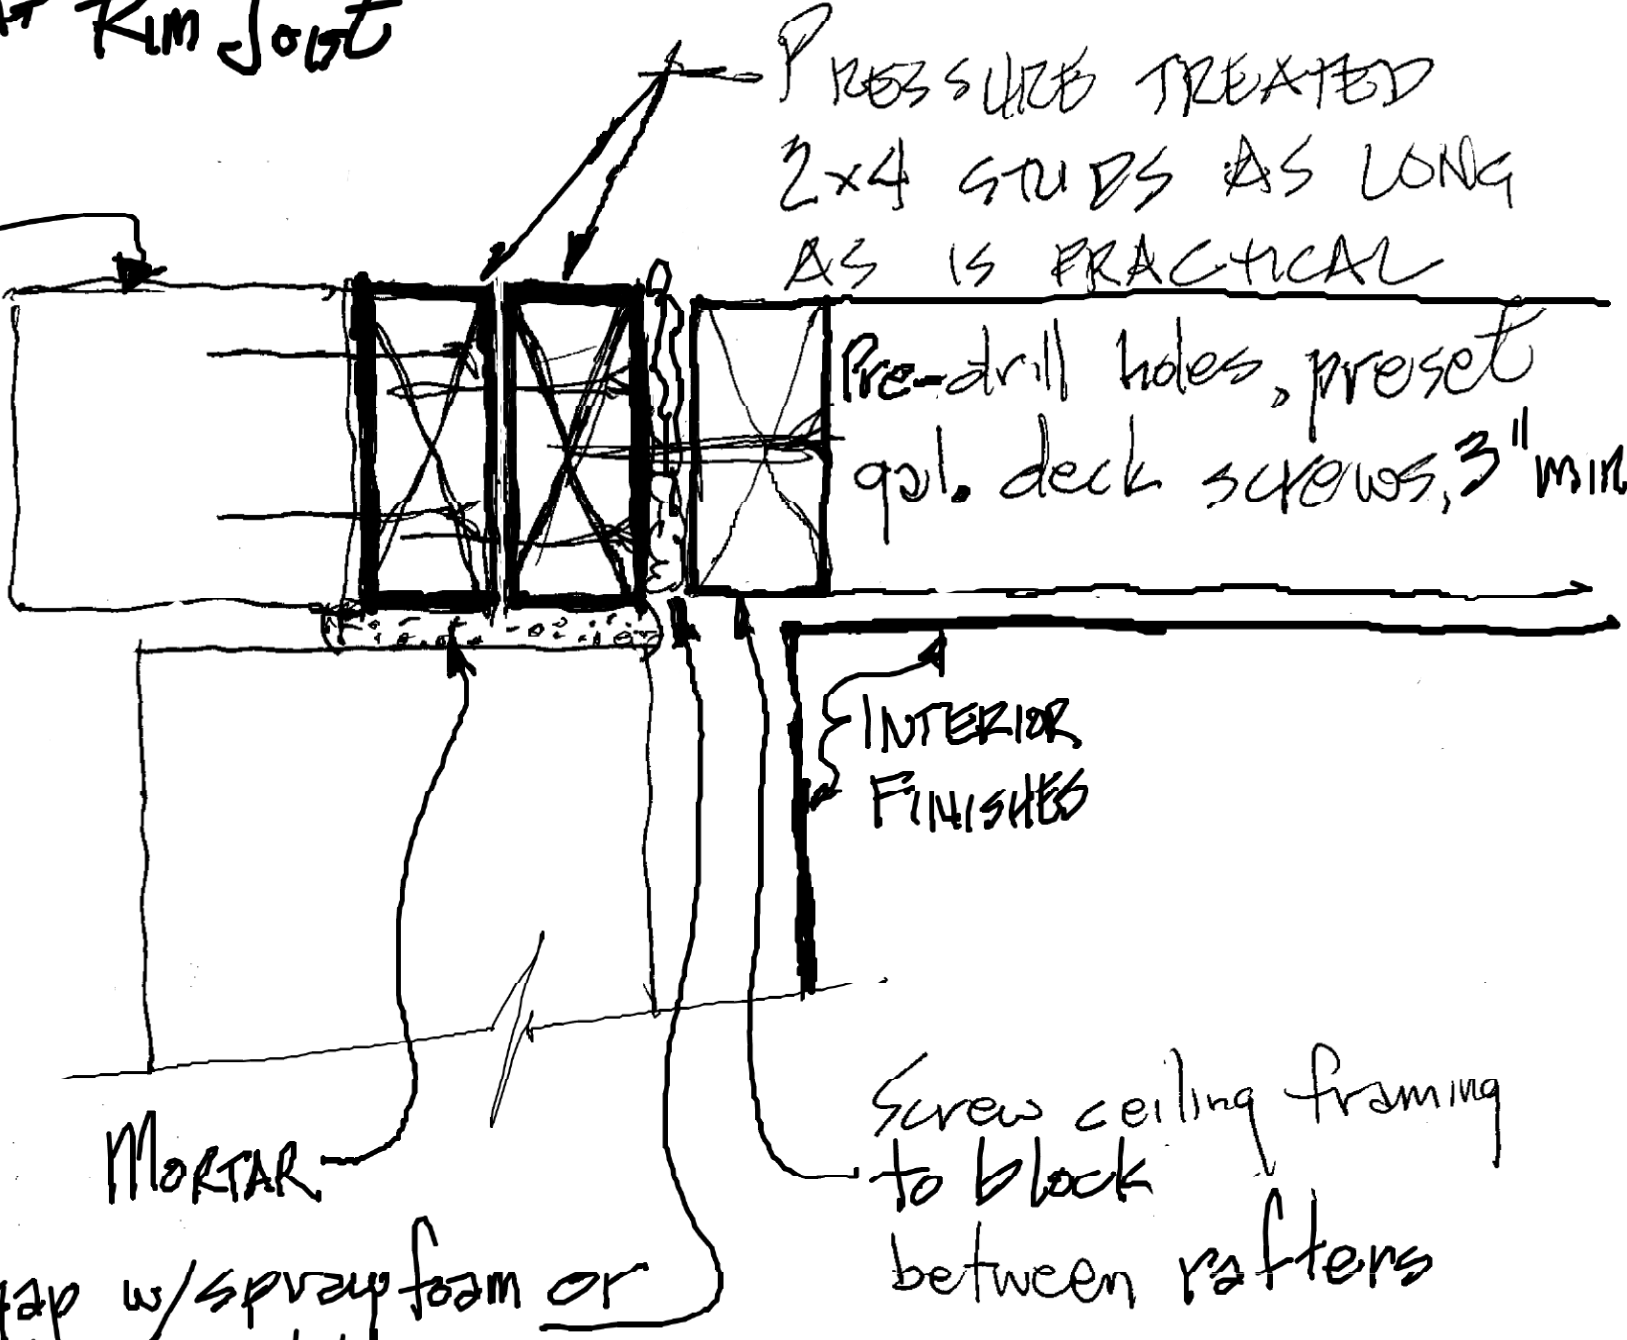 Rim Joist
PRESSURE TREATED
2x4 STUDS AS LONG
AS IS PRACTICAL
Pre-drill holes, preset
gal. deck screws, 3" min
INTERIOR
FINISHES
MORTAR
Screw ceiling framing
to block
between rafters
gap w/spray foam or